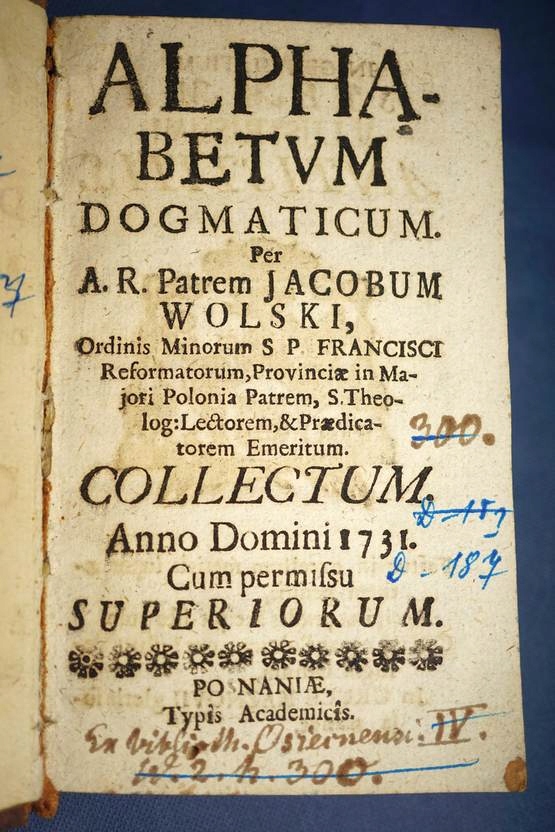 ALPHA-
BETVM
DOGMATICUM.
Per
A. R. Patrem JACOBUM
WOLSKI,
Ordinis Minorum S P. FRANCISCI
Reformatorum, Provinciæ in Ma-
jori Polonia Patrem, S. Theo-
log: Lectorem, & Prædica-
torem Emeritum.
300.
COLLECTUM.
D-189
Anno Domini 1731.
Cum permiſsu
D-187
SUPERIORUM.
PO NANIÆ,
Typis Academicîs.
Ex Biblioth. Osiecnensi. IV.
2. h. 300.